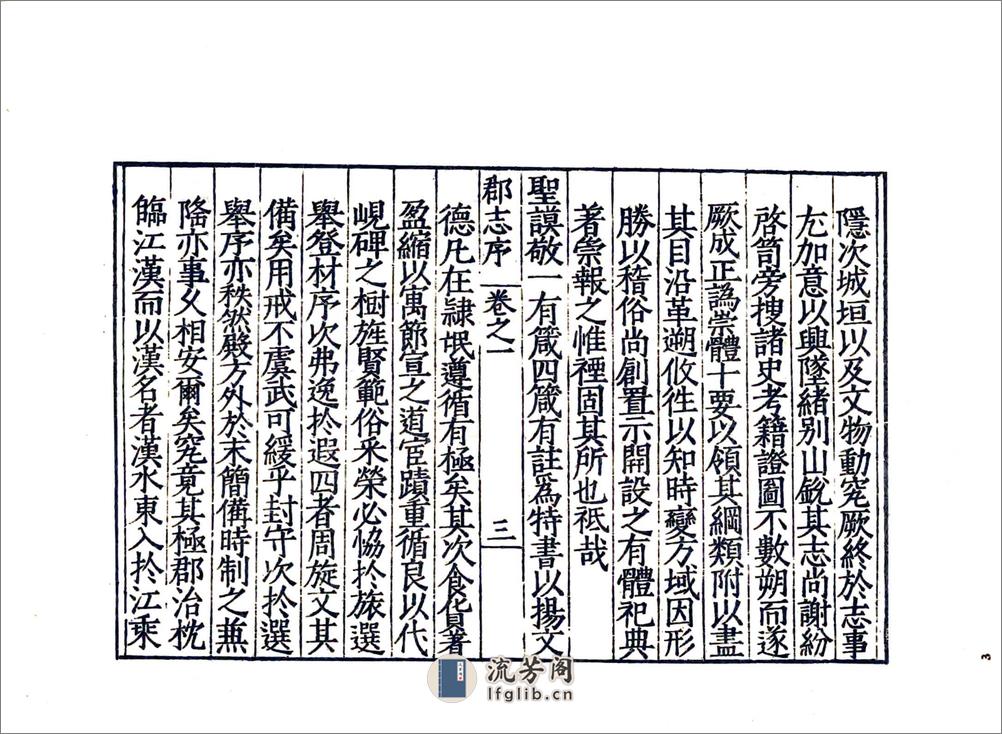 隱次城垣以及文物動究厥終於志事
尤加意以興墜緒別山銳其志尚謝紛
啓笥旁搜諸史考籍證圖不數朔而遂
厥成正譌崇體十要以領其綱類附以盡
其目沿革遡攸徃以知時變方域因形
勝以稽俗尚創置示開設之有體祀典
著崇報之惟禋固其所也祗哉
聖謨敬一有箴四箴有註爲特書以揚文
郡志序 卷之一 三
德凡在隷氓遵循有極矣其次食貨著
盈縮以寓節宣之道宦蹟重循良以代
峴碑之樹旌賢範俗采榮必恊於旅選
舉登材序次弗逸於遐四者周旋文其
備矣用戒不虞武可緩乎封守次於選
舉序亦秩然殿方外於末簡備時制之無
隆亦事乂相安爾矣究竟其極郡治枕
臨江漢而以漢名者漢水東入於江乘
流芳阁
lfglib.cn
3